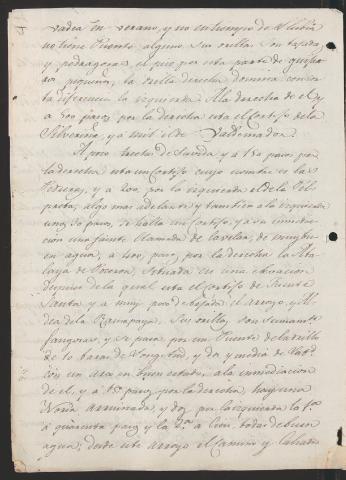 vadea en verano, y no en tiempo de lluvia
no tiene Puente alguno. Sus orillas son
y pedragosas, el piso por esta parte de guijar
ros pequeños, la orilla derecha domina con
ta diferencia la izquierda. A la derecha de el, y
a 500 pasos por la derecha esta el Cortijo de la
y a mil el de
A poco trecho de y a 150 pasos por
la derecha esta un Cortijo cuyo nombre es la
y a 200 por la izquierda el de la
algo mas adelante y tambien a la izquierda
unos 30 pasos, se halla un Cortijo, y a su inmedia
cion una fuente llamada de de muy bue
na agua; a 400 pasos por la derecha la Ata
laya de situada en una elevacion
despues de la qual esta el Cortijo de Fuente
Santa y a muy poco de pasado el arroyo, y Al
dea de la Sus orillas son sumam.te
fangosas, y se pasa por un Puente de ladrillo
de 10 baras de longitud, y dos y media de lat.d
con un arco en buen estado, a la inmediacion
de el, y a 15 pasos por la derecha, hay una
Noria arruinada, y dos por la izquierda la 1.a
a quarenta pasos y la 2.a a cien, todas de buen
agua; desde este arroyo el Camino y